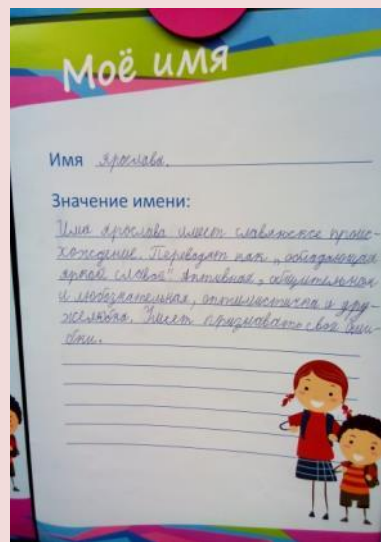 Моё имя
Имя Ярослава.
Значение имени:
Имя Ярослава имеет славянское проис-
хождение. Переводят как „обладающая
яркой славой". Активная, общительная
и любознательная, оптимистична и дру-
желюбна. Умеет признавать свои оши-
бки.